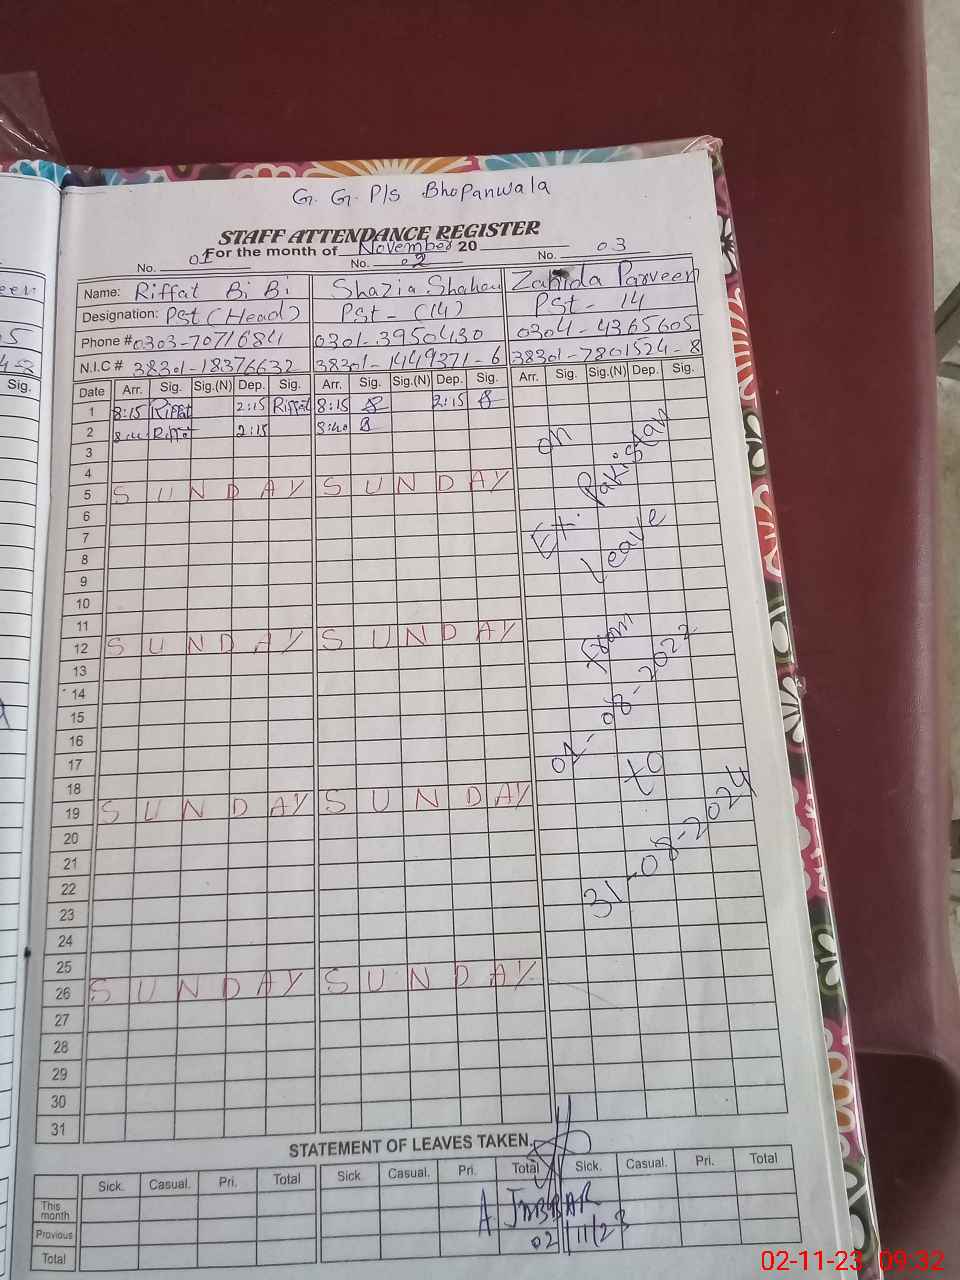 G. G. P/S Bhopanwala
STAFF ATTENDANCE REGISTER
For the month of November 20
No. 01 No. 02 No. 03
Name: Riffat Bi Bi Shazia Shaheen Zahida Parveen
Designation: PSt (Head) PSt - (14) PSt - 14
Phone # 0303-7071684 0301-3950430 0304-4365605
N.I.C # 38301-18376632 38301-1449371-6 38301-7801524-8
Date Arr. Sig. Sig.(N) Dep. Sig. Arr. Sig. Sig.(N) Dep. Sig. Arr. Sig. Sig.(N) Dep. Sig.
1 8:15 Riffat 2:15 Riffat 8:15 2:15
2 Riffat 2:15 8:40
3
4
5 SUNDAY SUNDAY
6
7
8
9
10
11
12 SUNDAY SUNDAY
13
14
15
16
17
18
19 SUNDAY SUNDAY
20
21
22
23
24
25
26 SUNDAY SUNDAY
27
28
29
30
31
on
Ex. Pakistan
Leave
from
02-08-2022
to
31-08-2024
STATEMENT OF LEAVES TAKEN.
Sick. Casual. Pri. Total Sick. Casual. Pri. Total Sick. Casual. Pri. Total
This month
Previous
Total
A. JABBAR
02/11/23
een
Sig.
02-11-23 09:32